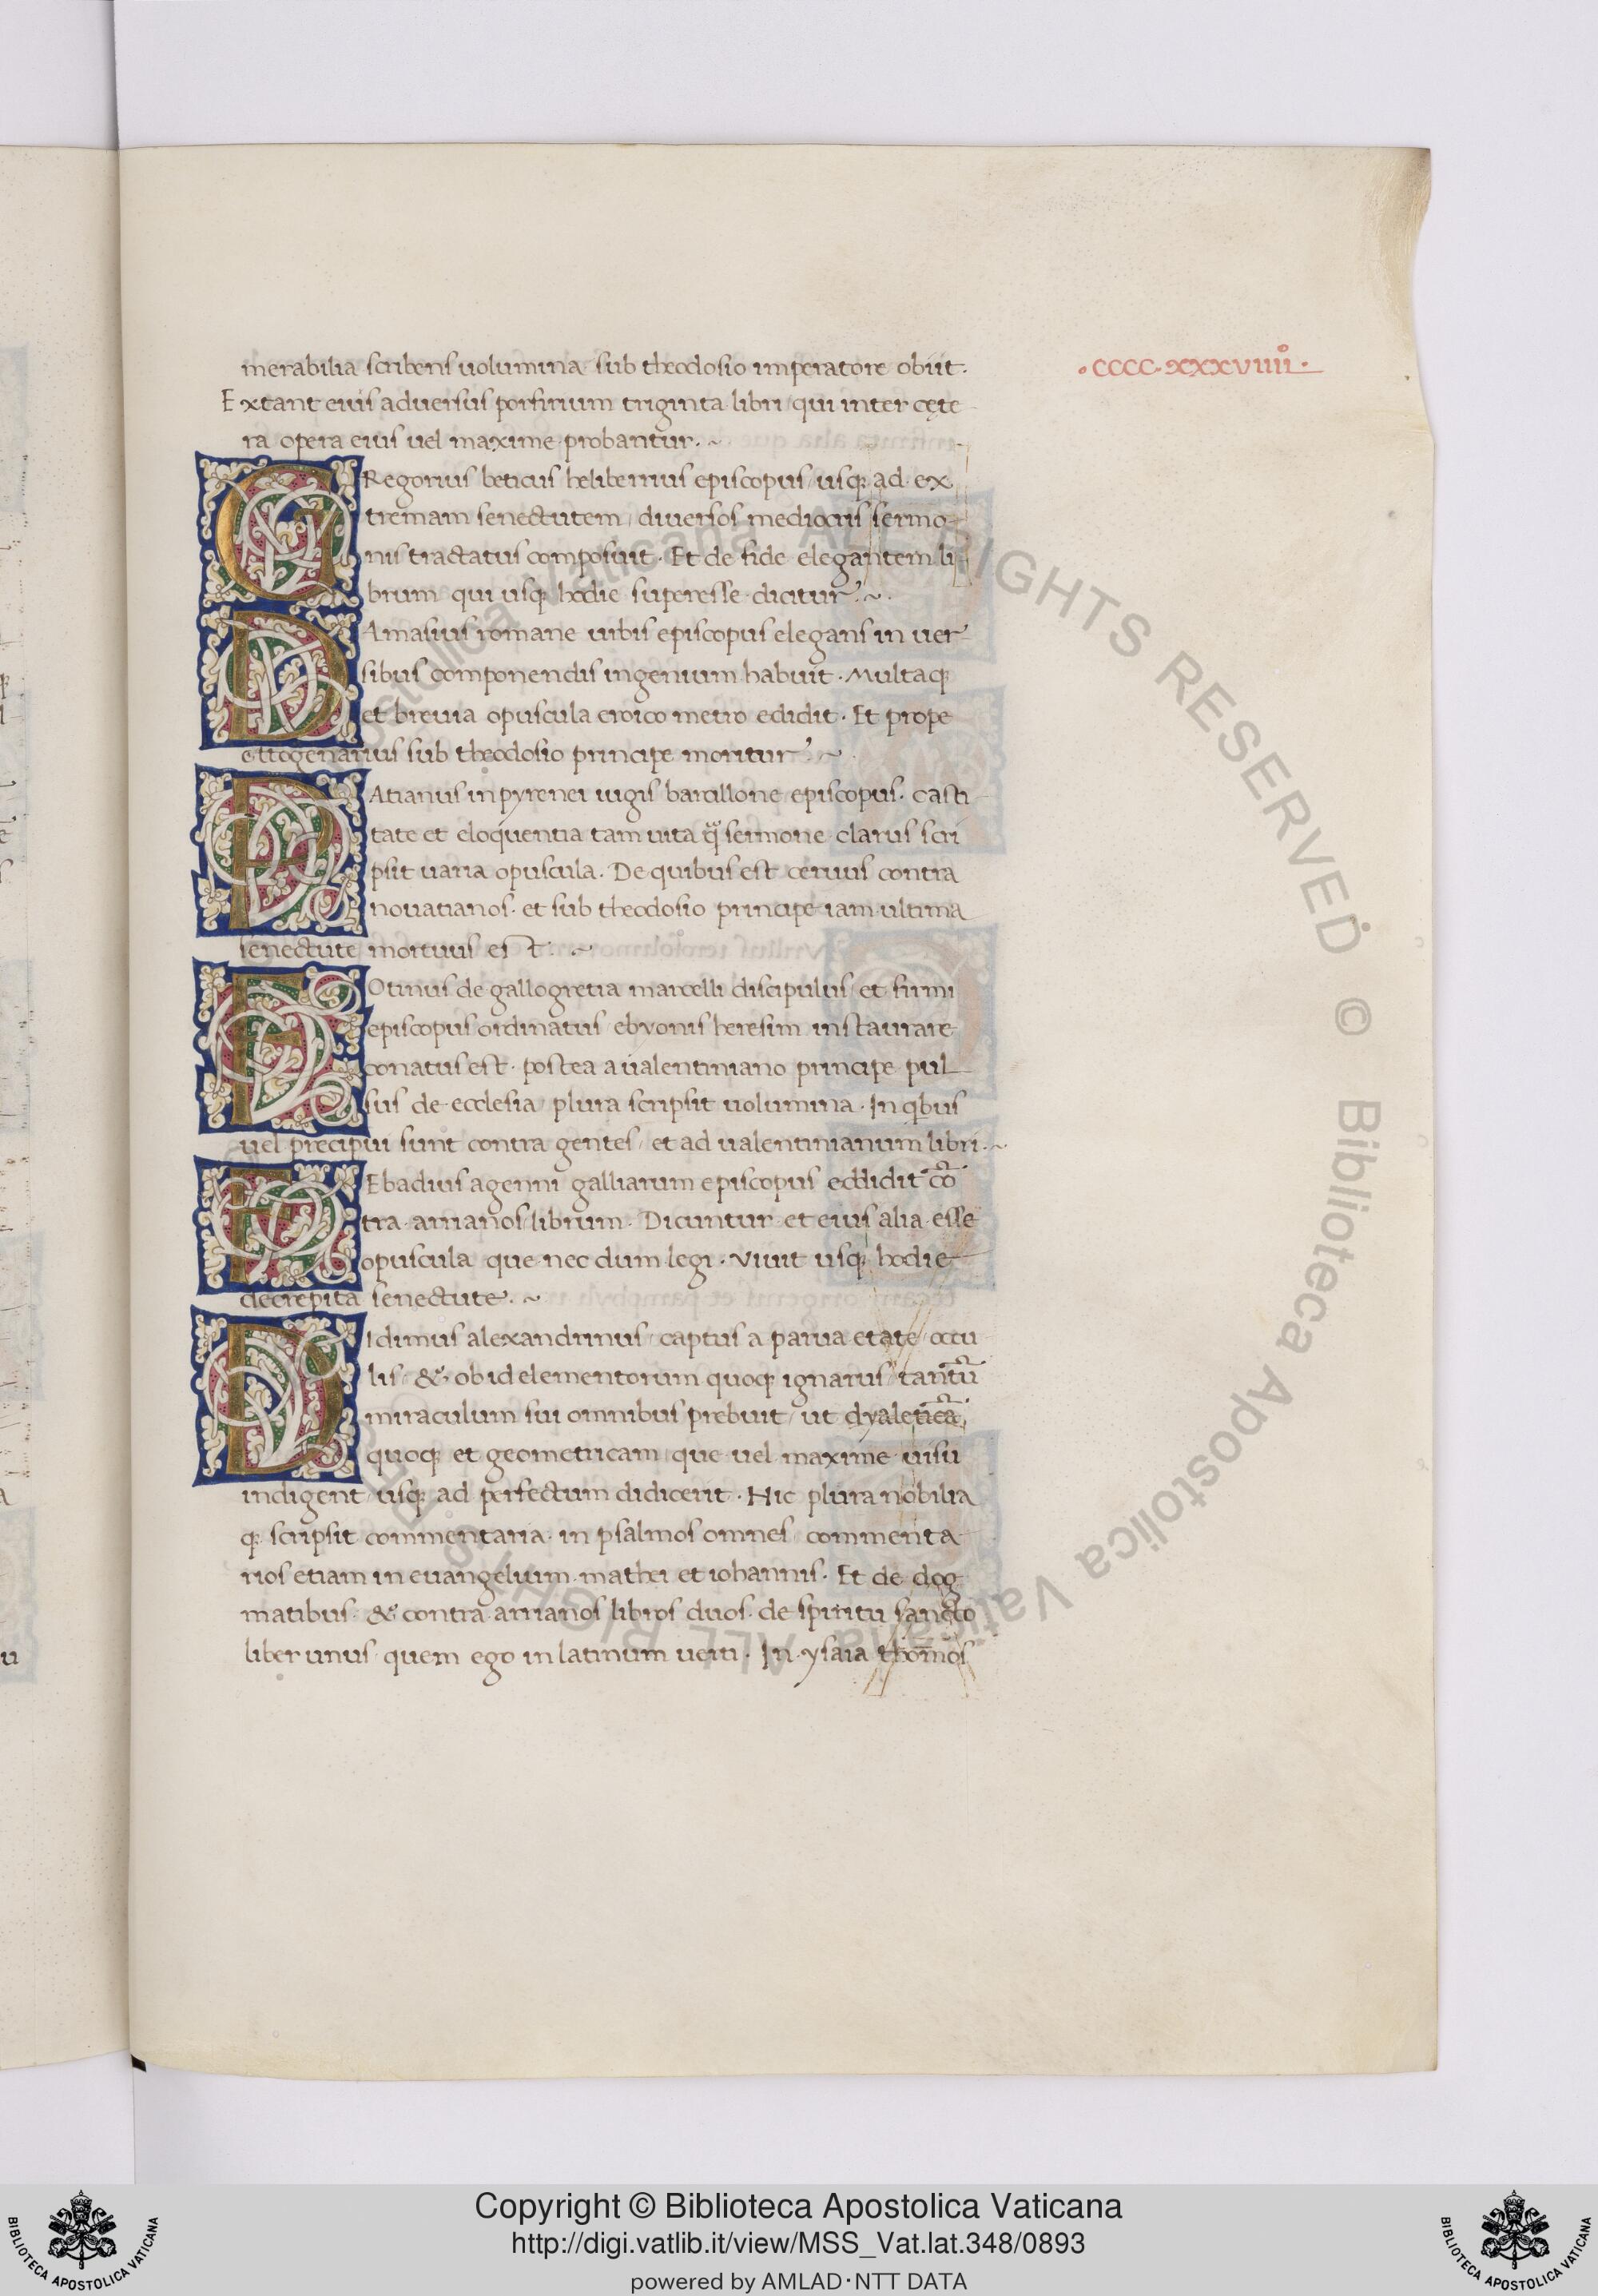 ·CCCC·XXXVIIII·
merabilia scribens uolumina sub theodosio imperatore obiit.
Extant eius aduersus porfirium triginta libri qui inter cęte
ra opera eius uel maxime probantur.~
GRegorius beticus heliberrius episcopus usq; ad ex
tremam senectutem, diuersos mediocris sermo
nis tractatus composuit. Et de fide elegantem li
brum qui usq; hodie superesse dicitur.~
DAmasius romane urbis episcopus elegans in uer
sibus componendis ingenium habuit. Multaq;
et breuia opuscula eroico metro edidit. Et prope
ottogenarius sub theodosio principe moritur.~
PAtianus in pyrenei iugis barcillone episcopus. casti
tate et eloquentia tam uita q̃ sermone clarus scri
psit uaria opuscula. De quibus est ceruus contra
nouatianos. et sub theodosio principe iam ultima
senectute mortuus est.~
FOtinus de gallogretia marcelli discipulus et sirmi
episcopus ordinatus ebyonis heresim instaurare
conatus est. postea a ualentiniano principe pul
sus de ecclesia plura scripsit uolumina. In qbus
uel precipui sunt contra gentes, et ad ualentinianum libri.~
FEbadius agenni galliarum episcopus eddidit cõ
tra arrianos librum. Dicuntur et eius alia esse
opuscula que nec dum legi. Viuit usq; hodie
decrepita senectute.~
DIdimus alexandrinus captus a parua etate occu
lis, & ob id elementorum quoq; ignarus tantũ
miraculum sui omnibus prebuit, ut dyaleticã
quoq; et geometricam que uel maxime uisu
indigent usq; ad perfectum didicerit. Hic plura nobilia
q; scripsit commentaria in psalmos omnes commenta
rios etiam in euangelium mathei et iohannis. Et de dog
matibus & contra arrianos libros duos. de spiritu sancto
liber unus quem ego in latinum uerti. In ysaia thomos
Biblioteca Apostolica Vaticana ALL RIGHTS RESERVED ©
Copyright © Biblioteca Apostolica Vaticana
http://digi.vatlib.it/view/MSS_Vat.lat.348/0893
powered by AMLAD·NTT DATA
BIBLIOTECA APOSTOLICA VATICANA
BIBLIOTECA APOSTOLICA VATICANA